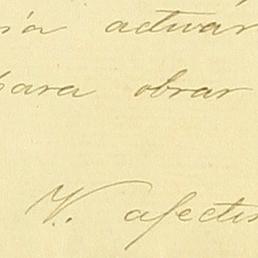 ria actuar
para obrar
V. afectis